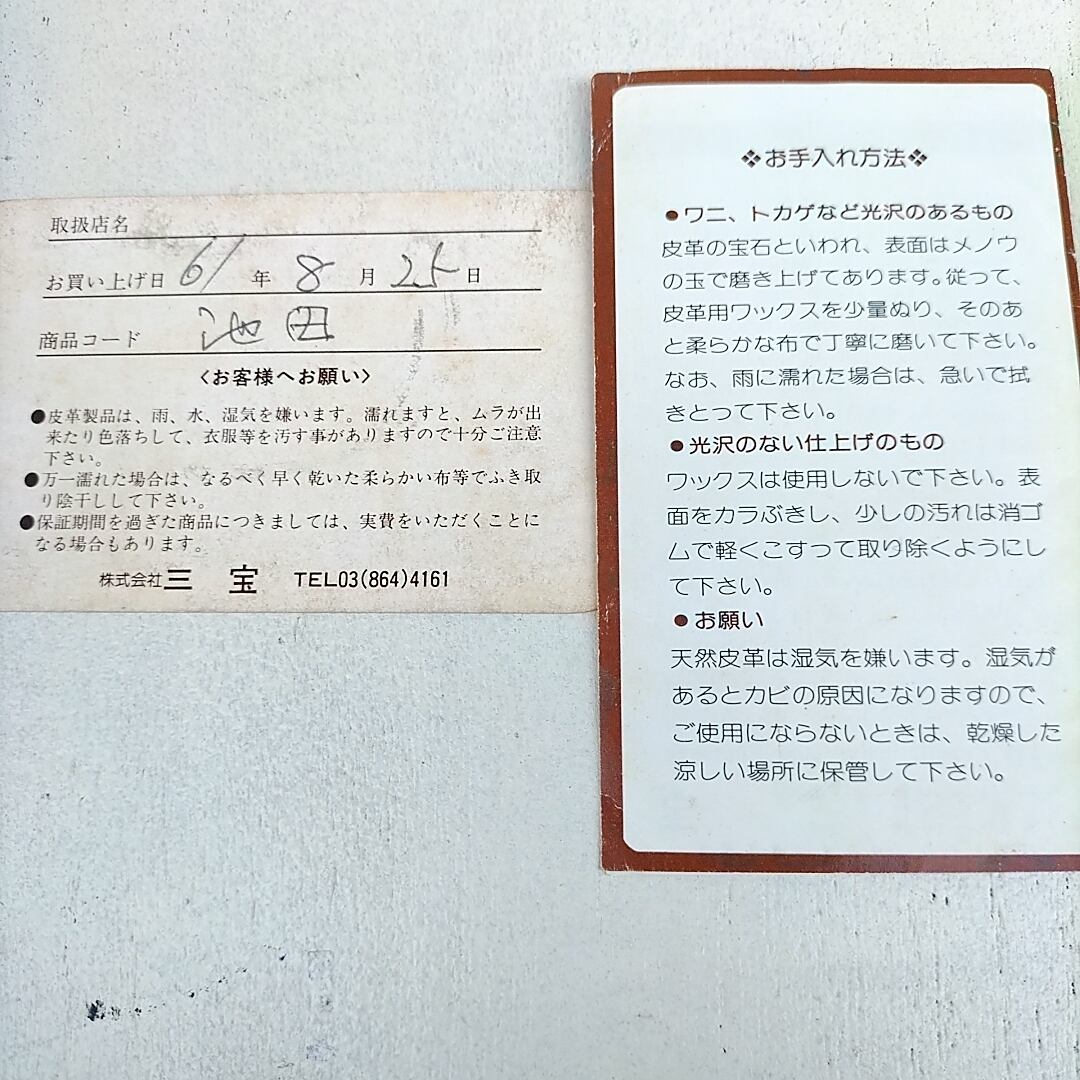 取扱店名
お買い上げ日 61 年 8 月 25 日
商品コード 池田
〈お客様へお願い〉
●皮革製品は、雨、水、湿気を嫌います。濡れますと、ムラが出
来たり色落ちして、衣服等を汚す事がありますので十分ご注意
下さい。
●万一濡れた場合は、なるべく早く乾いた柔らかい布等でふき取
り陰干しして下さい。
●保証期間を過ぎた商品につきましては、実費をいただくことに
なる場合もあります。
株式会社 三宝 TEL03(864)4161
❖お手入れ方法❖
●ワニ、トカゲなど光沢のあるもの
皮革の宝石といわれ、表面はメノウ
の玉で磨き上げてあります。従って、
皮革用ワックスを少量ぬり、そのあ
と柔らかな布で丁寧に磨いて下さい。
なお、雨に濡れた場合は、急いで拭
きとって下さい。
●光沢のない仕上げのもの
ワックスは使用しないで下さい。表
面をカラぶきし、少しの汚れは消ゴ
ムで軽くこすって取り除くようにし
て下さい。
●お願い
天然皮革は湿気を嫌います。湿気が
あるとカビの原因になりますので、
ご使用にならないときは、乾燥した
涼しい場所に保管して下さい。